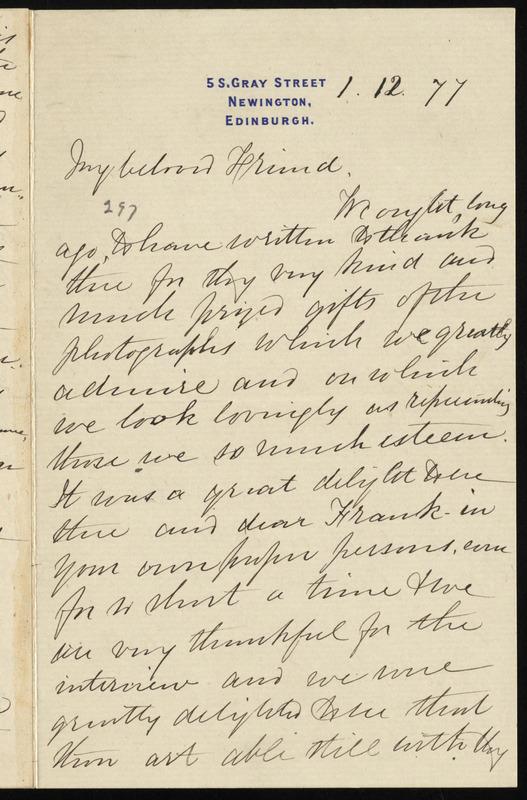 5 S. GRAY STREET
NEWINGTON,
EDINBURGH.
1. 12. 77
My beloved Friend.
297
We ought, long
ago, to have written to thank
thee for thy very kind and
much prized gifts of the
photographs which we greatly
admire and on which
we look lovingly as representing
those we so much esteem.
It was a great delight to see
thee and dear Frank in
your own proper persons, even
for so short a time & we
are very thankful for the
interview and we were
greatly delighted to see that
thou art able still with thy